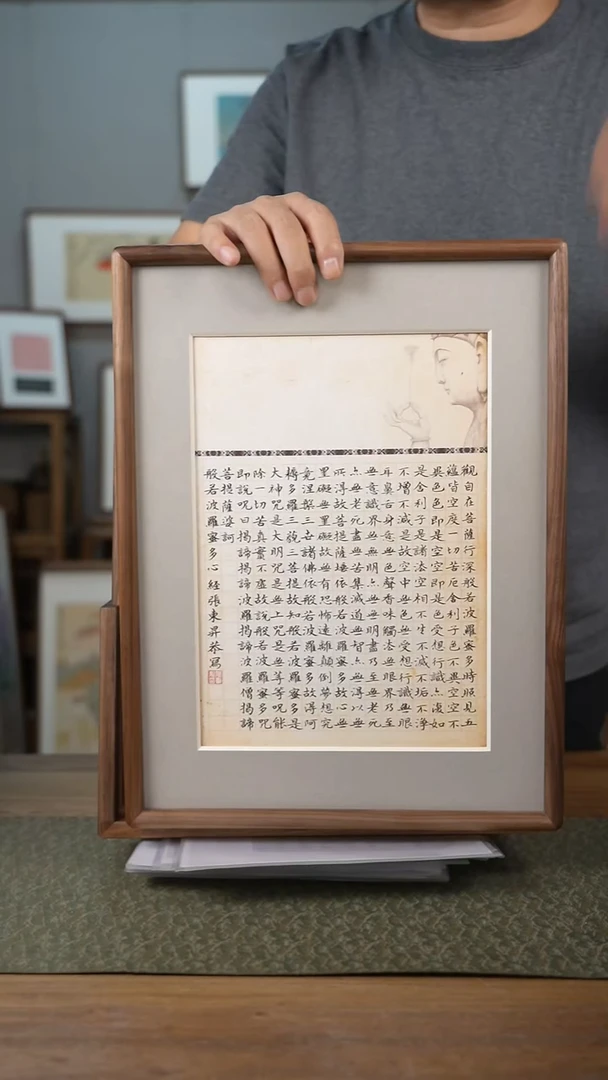 觀自在菩薩行深般若波羅蜜多時照見五
蘊皆空度一切苦厄舍利子色不異空空不
異色色即是空空即是色受想行識亦復如
是舍利子是諸法空相不生不滅不垢不淨
不增不減是故空中無色無受想行識無眼
耳鼻舌身意無色聲香味觸法無眼界乃至
無意識界無無明亦無無明盡乃至無老死
亦無老死盡無苦集滅道無智亦無得以無
所得故菩提薩埵依般若波羅蜜多故心無
罣礙無罣礙故無有恐怖遠離顛倒夢想究
竟涅槃三世諸佛依般若波羅蜜多故得阿
耨多羅三藐三菩提故知般若波羅蜜多是
大神咒是大明咒是無上咒是無等等咒能
除一切苦真實不虛故說般若波羅蜜多咒
即說咒曰揭諦揭諦波羅揭諦波羅僧揭諦
菩提薩婆訶
般若波羅蜜多心經張東昇恭寫